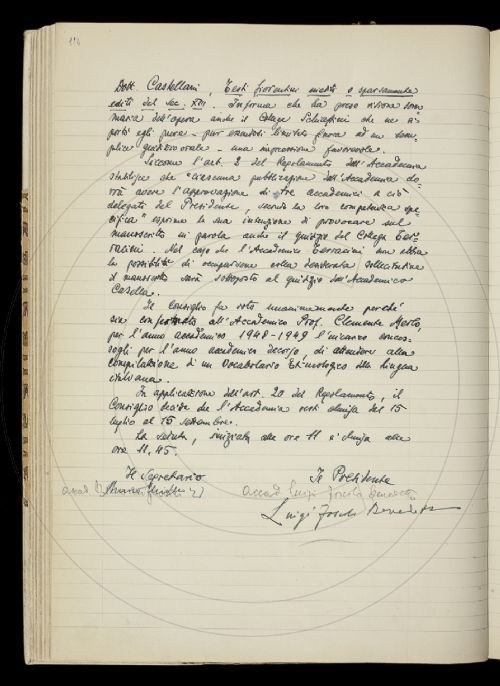 116
Dott. Castellani, Testi fiorentini inediti o sparsamente
editi del sec. XIII. Informa che ha preso visione som-
maria dell'opera anche il Collega Schiaffini che ne ri-
portò egli pure - pur essendosi limitato finora ad un sem-
plice giudizio orale - una impressione favorevole.
Siccome l'art. 2 del Regolamento dell'Accademia
stabilisce che "ciascuna pubblicazione dell'Accademia do-
vrà avere l'approvazione di tre accademici a ciò
delegati dal Presidente, secondo la loro competenza spe-
cifica" esprime la sua intenzione di provocare sul
manoscritto in parola anche il giudizio del Collega Ter-
racini. Nel caso che l'Accademico Terracini non abbia
la possibilità di occuparsene colla desiderata sollecitudine
il manoscritto sarà sottoposto al giudizio dell'Accademico
Casella.
Il Consiglio fa voto unanimemente perché
sia confermato all'Accademico Prof. Clemente Merlo,
per l'anno accademico 1948-1949 l'incarico conces-
sogli per l'anno accademico decorso, di attendere alla
compilazione di un Vocabolario Etimologico della lingua
italiana.
In applicazione dell'art. 20 del Regolamento, il
Consiglio decide che l'Accademia resti chiusa dal 15
luglio al 15 settembre.
La seduta, iniziata alle ore 11 è chiusa alle
ore 11,45.
Il Segretario
Il Presidente
accad. Bruno
accad. Luigi Foscolo Benedetto
Luigi Foscolo Benedetto